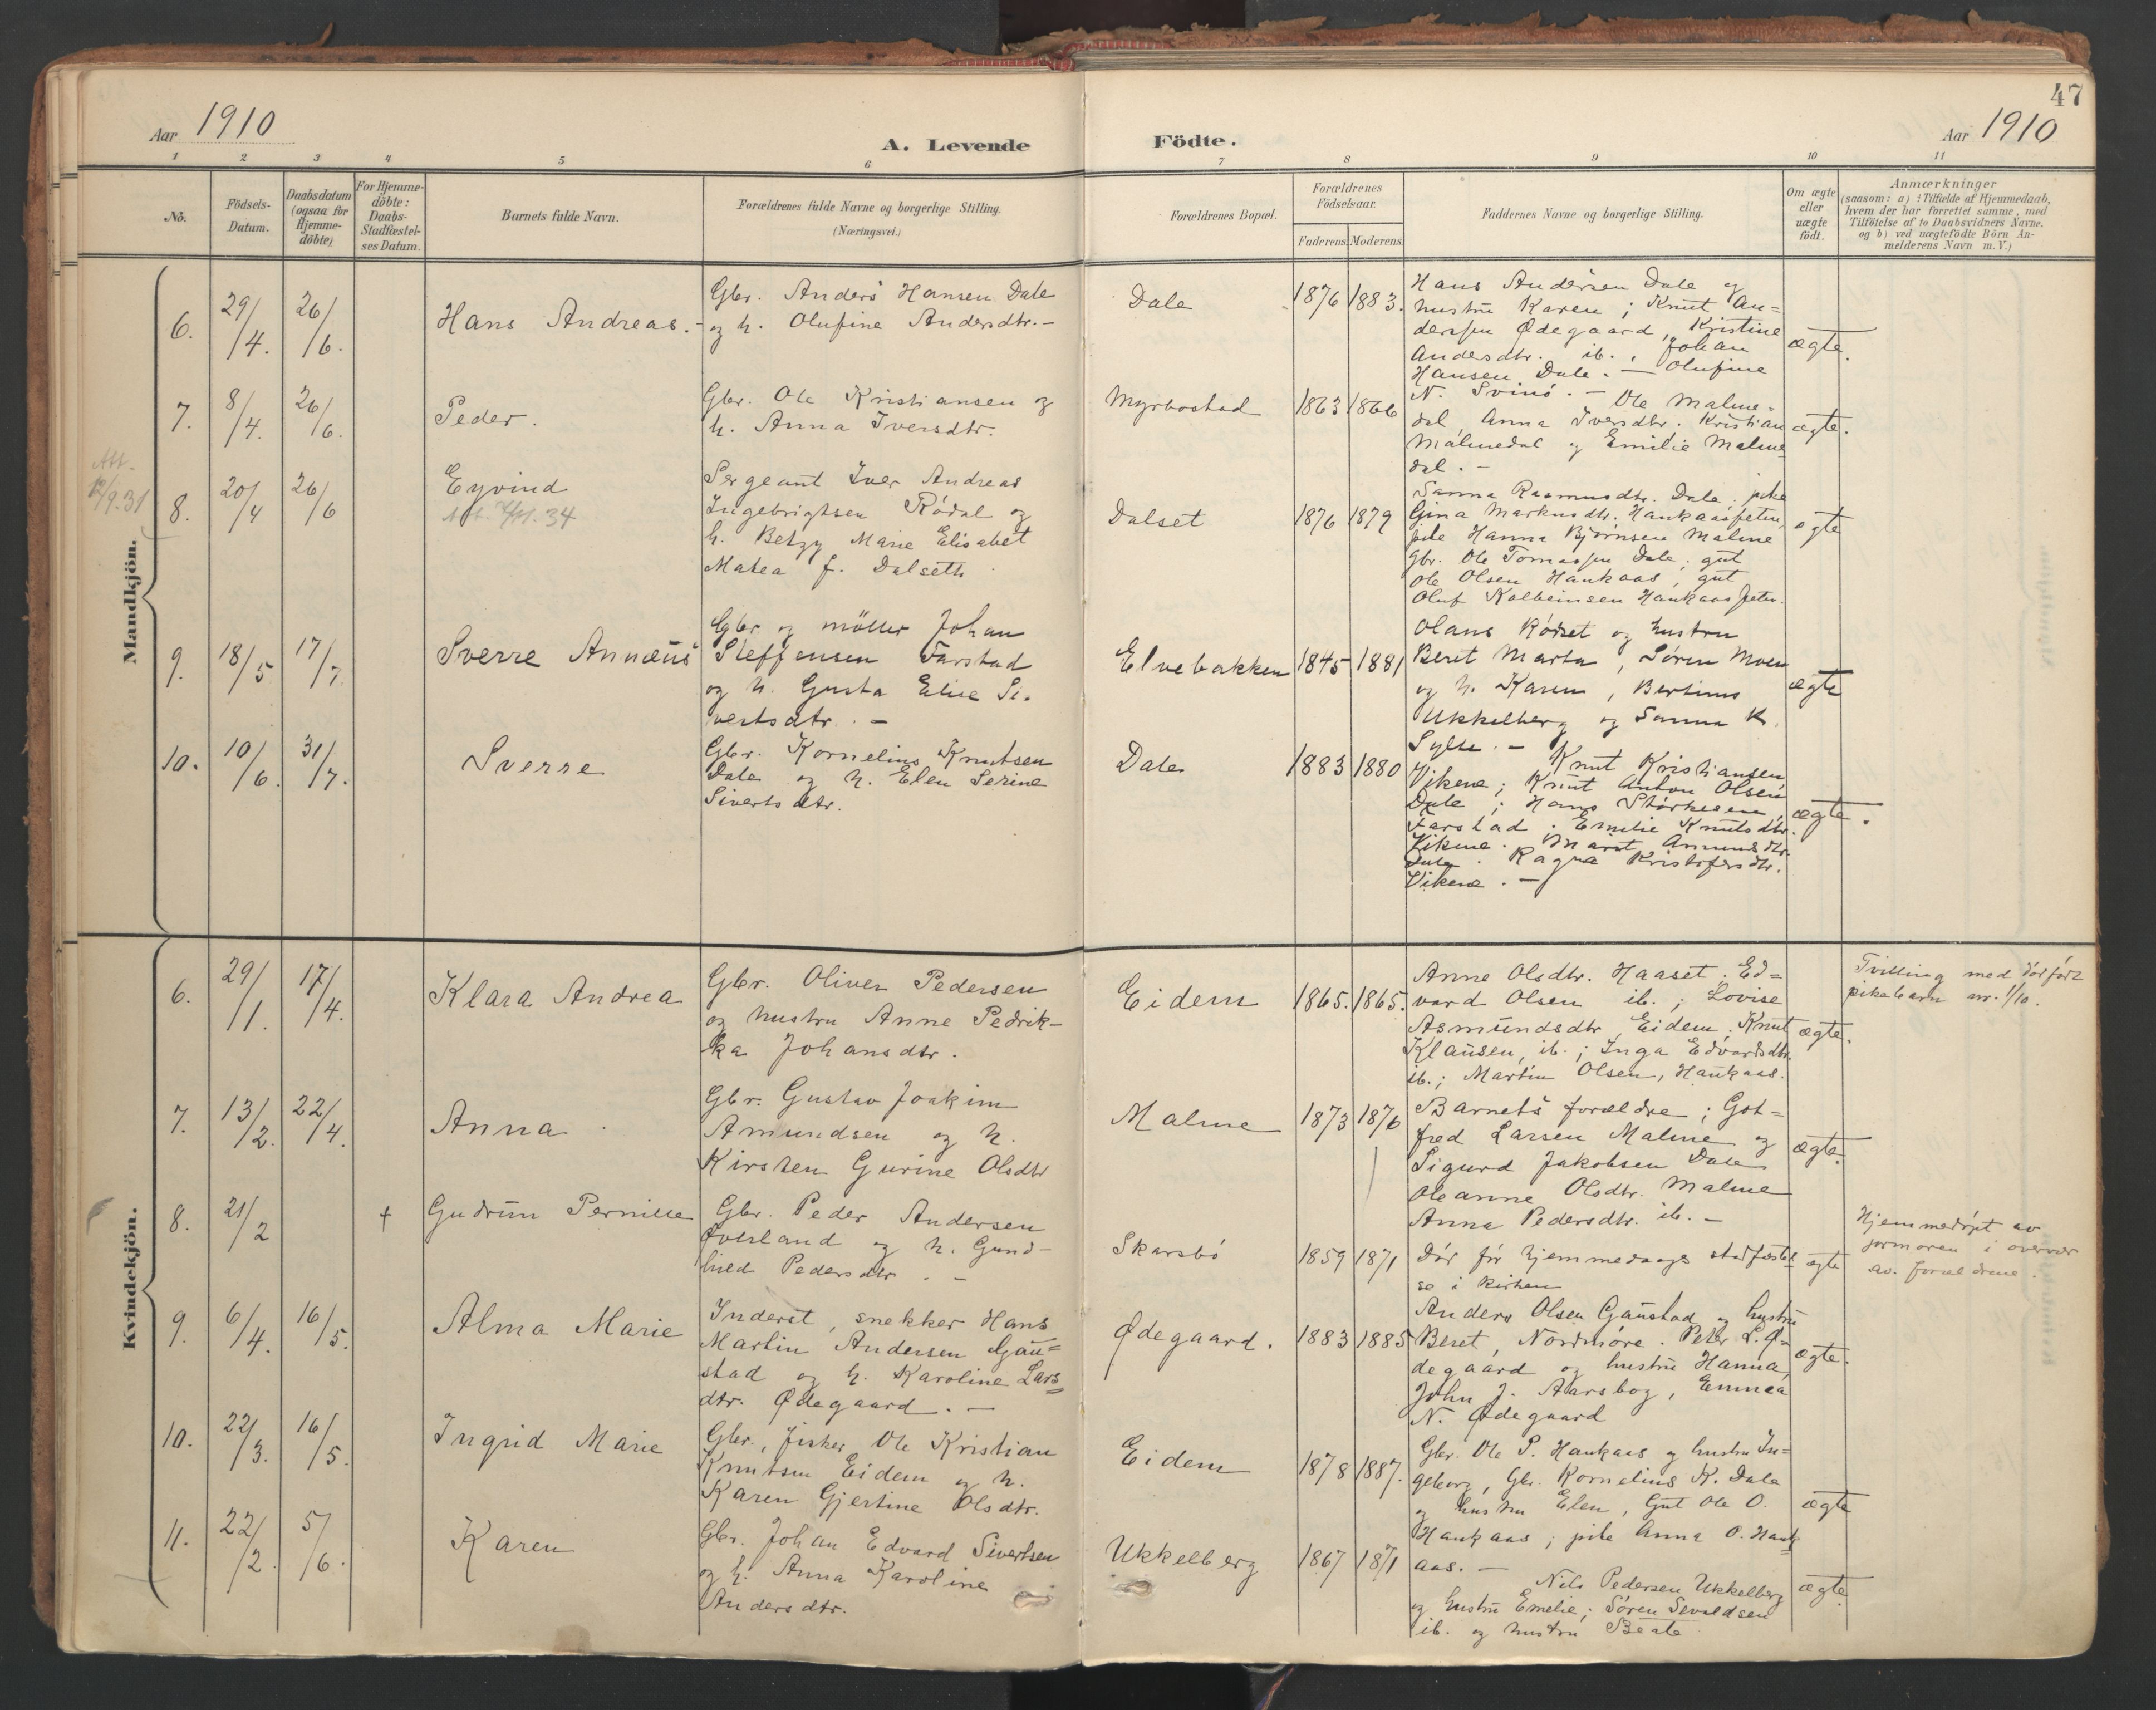 47
Aar 1910
A. Levende Födte.
Aar 1910
1 2 3 4 5 6 7 8 9 10 11
Nö.
Födsels-Datum.
Daabsdatum (ogsaa for Hjemme-döbte)
For Hjemme-döbte: Daabs-Stadfæstel-ses Datum.
Barnets fulde Navn.
Forældrenes fulde Navne og borgerlige Stilling.
(Næringsvei.)
Forældrenes Bopæl.
Forældrenes Födselsaar.
Faderens. Moderens.
Faddernes Navne og borgerlige Stilling.
Om ægte eller uægte födt.
Anmærkninger
(saasom: a) i Tilfælde af Hjemmedaab,
hvem der har forrettet samme, med
Tilföielse af to Daabsvidners Navne.
og b) ved uægtefödte Börn An-
melderens Navn m. V.)
Mandkjön.
6. 29/4. 26/6. Hans Andreas.-
Gbr. Anders Hansen Dale
og h. Olufine Andersdtr.-
Dale 1876 1883.
Hans Andersen Dale og
hustru Karen; Knut An=
derssen Ødegaard, Kristine
Andersdtr. ib., Johan
Hansen Dale. - Olufine
N. Svinö. -
ægte.
7. 8/4. 26/6. Peder.
Gbr. Ole Kristiansen og
h. Anna Iversdtr.
Myrbostad 1863 1866
Ole Malme-
dal, Anna Iversdtr. Kristian
Malmedal og Emilie Malme
dal. -
ægte.
Att.
12/9.31
8. 20/4 26/6 Eyvind
Att. 34
Sergeant Iver Andreas
Ingebrigtsen Rödal og
h. Betzy Marie Elisabet
Matea f. Dalseth
Dalset 1876 1879
Sanna Rasmusdtr. Dale. pike
Gina Markusdtr. Haukaas
pike Hanna Björnsen Malme
gbr. Ole Tomassen Dale; gut
Ole Olsen Haukaas, gut
Oluf Kolbeinsen Haukaas
ægte
9. 18/5 17/7 Sverre Annæus
Gbr og möller Johan
Steffensen Farstad
og h. Gusta Elise Si-
vertsdtr. -
Elvebakken 1845 1881
Olaus Rödset og hustru
Beret Marta, Sören Moen
og h. Karen, Bertinus
Ukkelberg og Sanna K.
Sylte. -
ægte
10. 10/6. 31/7. Sverre
Gbr. Kornelius Knutsen
Dale og h. Elen Serine
Sivertsdtr.
Dale 1883 1880
Knut Kristiansen
Vikene; Knut Anton Olsen
Dale; Hans Störkesen
Farstad; Emilie Knutsdtr.
Vikene. Marit
Dale. Ragna Kristofersdtr.
Vikene. -
ægte.
Kvindekjön.
6. 29/1. 17/4. Klara Andrea
Gbr. Oliver Pedersen
og hustru Anne Pedrik-
ka Johansdtr.
Eidem 1865. 1865.
Anne Olsdtr. Haaset. Ed=
vard Olsen ib.; Lovise
Asmundsdtr Eidem. Knut
Klausen, ib.; Inga Edvardsdtr.
ib.; Martin Olsen, Haukaas.
ægte.
Tvilling med dödfödt
pikebarn nr. 1/10.
7. 13/2. 22/4. Anna
Gbr. Gustav Joakim
Amundsen og h.
Kirsten Gurine Olsdtr
Malme 1873 1876
Barnets forældre; Got=
fred Larsen Malme og
Sigurd Jakobsen Dale
Oleanne Olsdtr. Malme
Anna Pedersdtr. ib. -
ægte.
8. 21/2 † Gudrun Pernille
Gbr. Peder Andersen
Överland og h. Gund-
hild Pedersdtr. -
Skarsbö 1859 1871
Död för hjemmedaaps stadfæstel
se i kirken
ægte
Hjemmedöpt av
jormoren i overvær
av forældrene.
9. 6/4. 16/5. Alma Marie
Inderst, snekker Hans
Martin Andersen Gau=
stad og h. Karoline Lars
dtr. Ødegaard. -
Ødegaard. 1883 1885
Anders Olsen Gaustad og hustru
Beret, Nordmöre. Peter L. Ø=
degaard og hustru Hanna,
John J. Aarsbog, Emma
N. Ødegaard
ægte.
10. 22/3. 16/5. Ingrid Marie
Gbr., fisker Ole Kristian
Knutsen Eidem og h.
Karen Gjertine Olsdtr.
Eidem 1878 1887.
Gbr. Ole P. Haukaas og hustru In=
geborg, Gbr. Kornelius K. Dale
og hustru Elen, Gut Ole O.
Haukaas; pike Anna O. Hauk
aas. -
ægte
11. 22/2. 5/6. Karen
Gbr. Johan Edvard Sivertsen
og h. Anna Karoline
Andersdtr.
Ukkelberg 1867 1871
Nils Pedersen Ukkelberg
og hustru Emelie; Sören Sevaldsen
ib. og hustru Beate
ægte.